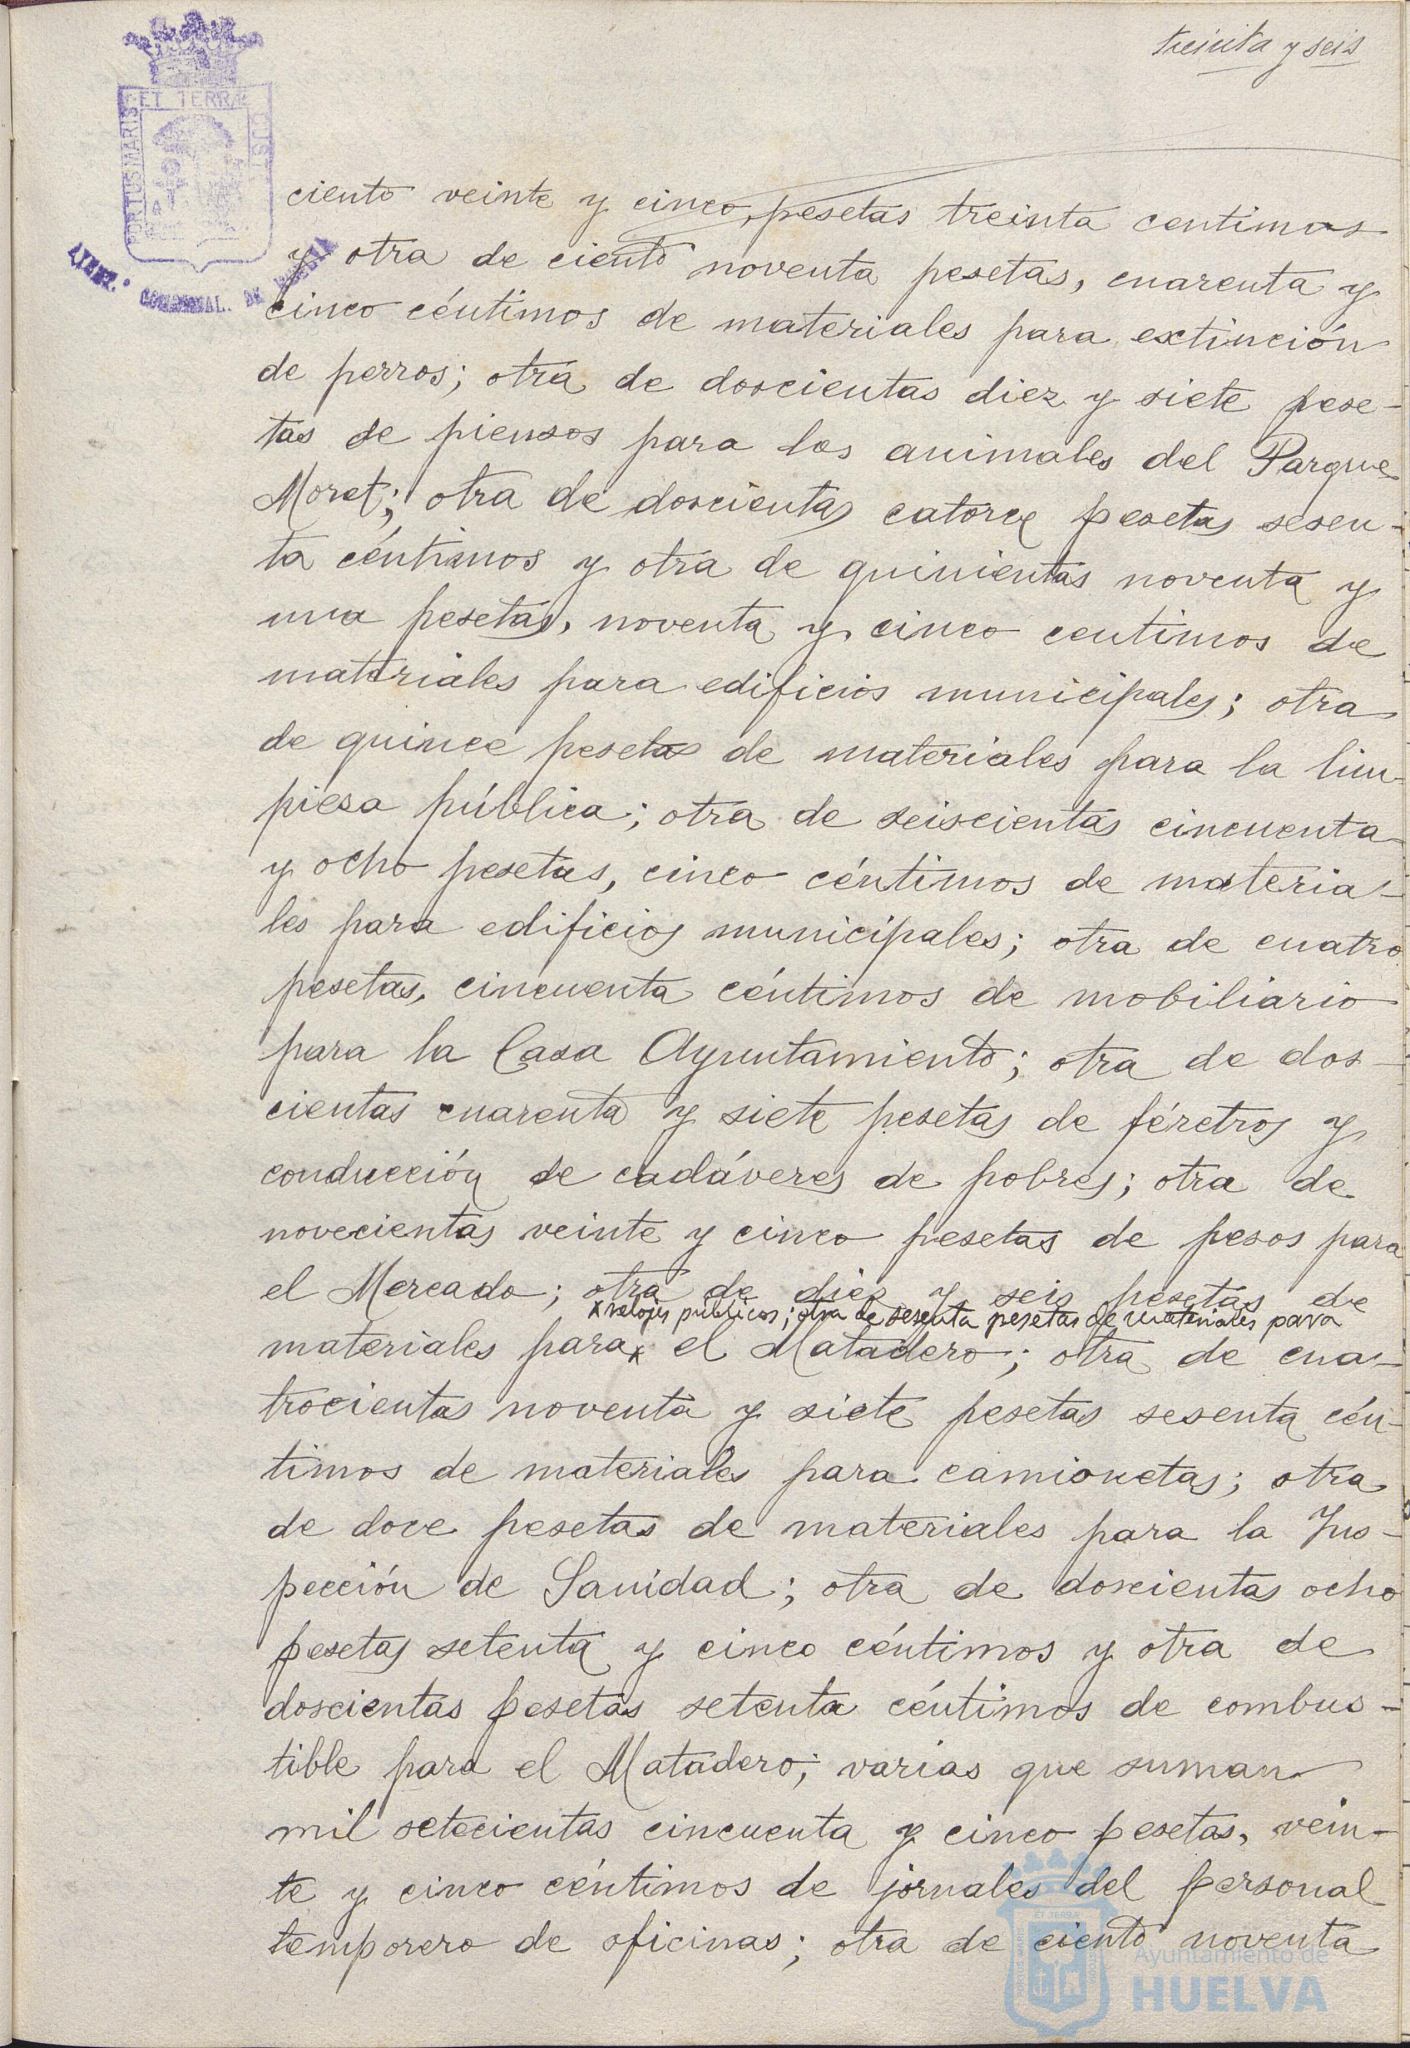 treinta y seis
ET TERRÆ
PORTUS MARIS
CUST
AYUNT.º CONSTITUCIONAL. DE HUELVA
ciento veinte y cinco, pesetas treinta centimos
y otra de ciento noventa pesetas, cuarenta y
cinco céntimos de materiales para extinción
de perros; otra de doscientas diez y siete pese-
tas de piensos para los animales del Parque
Moret; otra de doscientas catorce pesetas sesen-
ta céntimos y otra de quinientas noventa y
una pesetas, noventa y cinco centimos de
materiales para edificios municipales; otra
de quince pesetas de materiales para la lim-
piesa pública; otra de seiscientas cincuenta
y ocho pesetas, cinco céntimos de materia-
les para edificios municipales; otra de cuatro
pesetas, cincuenta céntimos de mobiliario
para la Casa Ayuntamiento; otra de dos-
cientas cuarenta y siete pesetas de féretros y
conducción de cadáveres de pobres; otra de
novecientas veinte y cinco pesetas de pesos para
el Mercado; otra de diez y seis pesetas de
x relojes públicos; otra de sesenta pesetas de materiales para
materiales para x el Matadero; otra de cua-
trocientas noventa y siete pesetas sesenta cén-
timos de materiales para camionetas; otra
de doce pesetas de materiales para la Ins-
pección de Sanidad; otra de doscientas ocho
pesetas setenta y cinco céntimos y otra de
doscientas pesetas setenta céntimos de combus-
tible para el Matadero; varias que suman
mil setecientas cincuenta y cinco pesetas, vein-
te y cinco céntimos de jornales del personal
temporero de oficinas; otra de ciento noventa
Ayuntamiento de
HUELVA